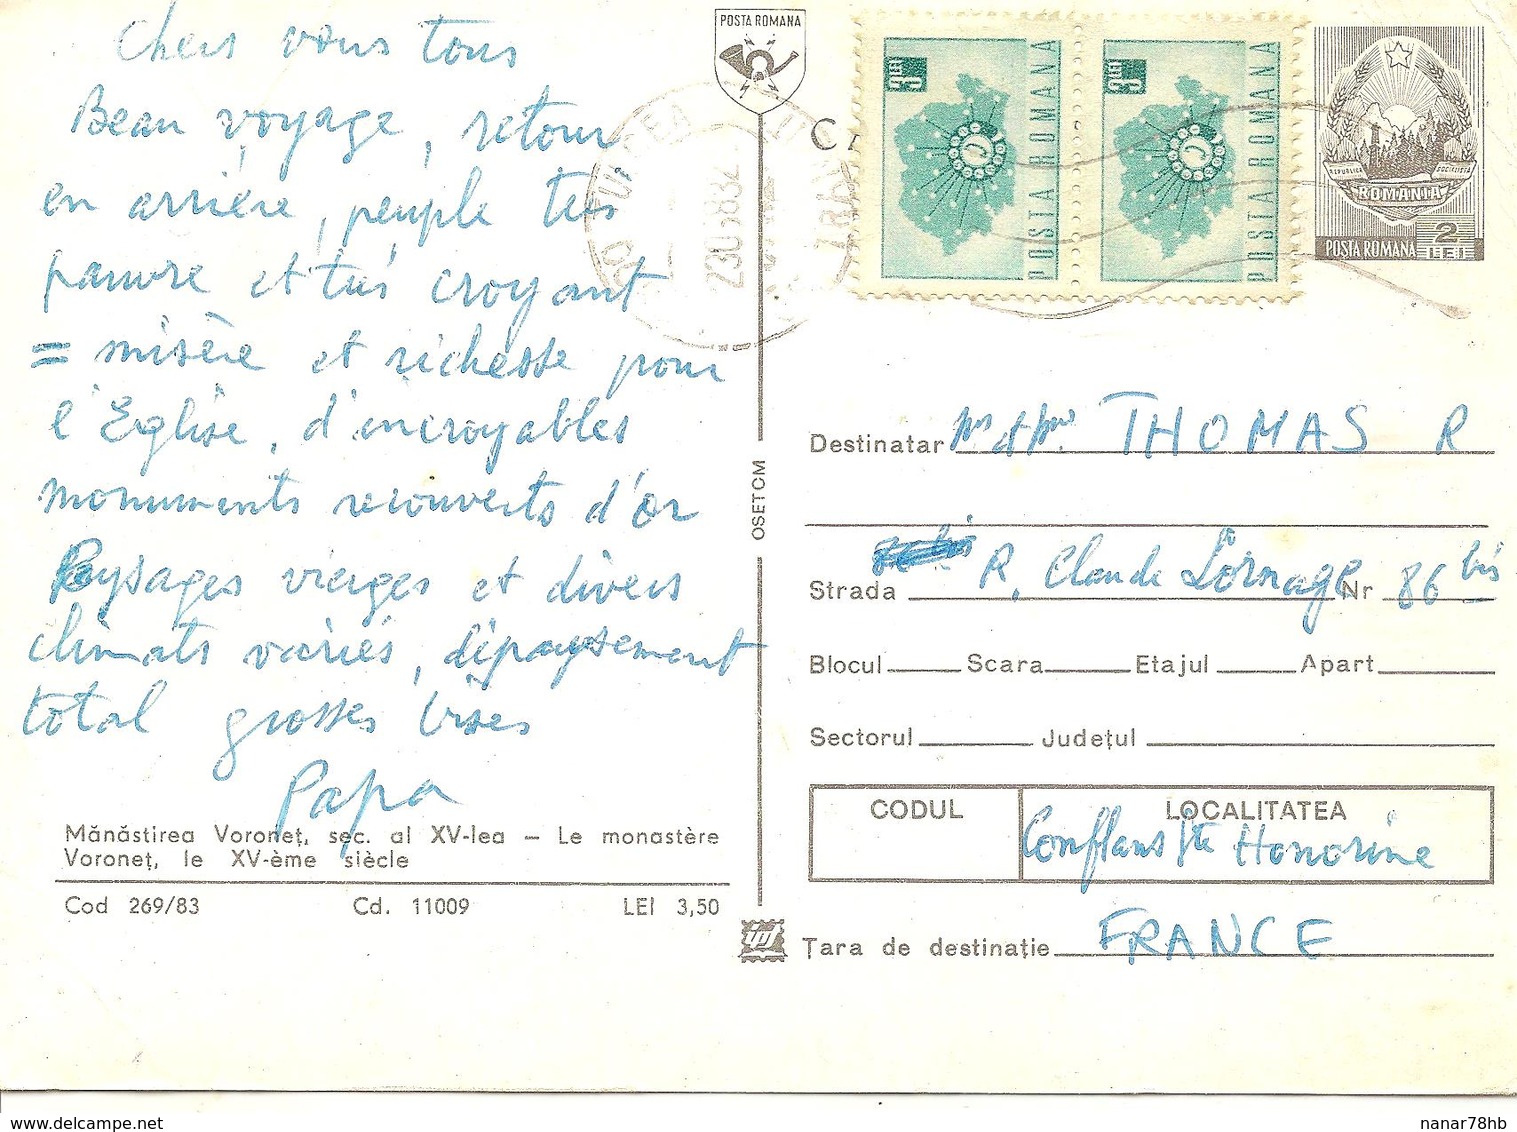 Chers vous tous
Beau voyage, retour
en arrière, peuple très
pauvre et très croyant
= misère et richesse pour
l'Eglise, d'incroyables
monuments recouverts d'or
Paysages vierges et divers
climats variés, dépaysement
total grosses bises
Papa
Mănăstirea Voroneţ, sec. al XV-lea – Le monastère
Voroneţ, le XV-ème siècle
Cod 269/83 Cd. 11009 LEI 3,50
OSETCM
POSTA ROMANA
CA
3 LEI POSTA ROMANA
3 LEI POSTA ROMANA
REPUBLICA SOCIALISTA
ROMANIA
POSTA ROMANA 2 LEI
Destinatar Mr et Mme THOMAS R
Strada R. Claude Lornage Nr 86 bis
Blocul Scara Etajul Apart
Sectorul Judeţul
CODUL LOCALITATEA
Conflans Ste Honorine
Ţara de destinaţie FRANCE
www.delcampe.net nanar78hb